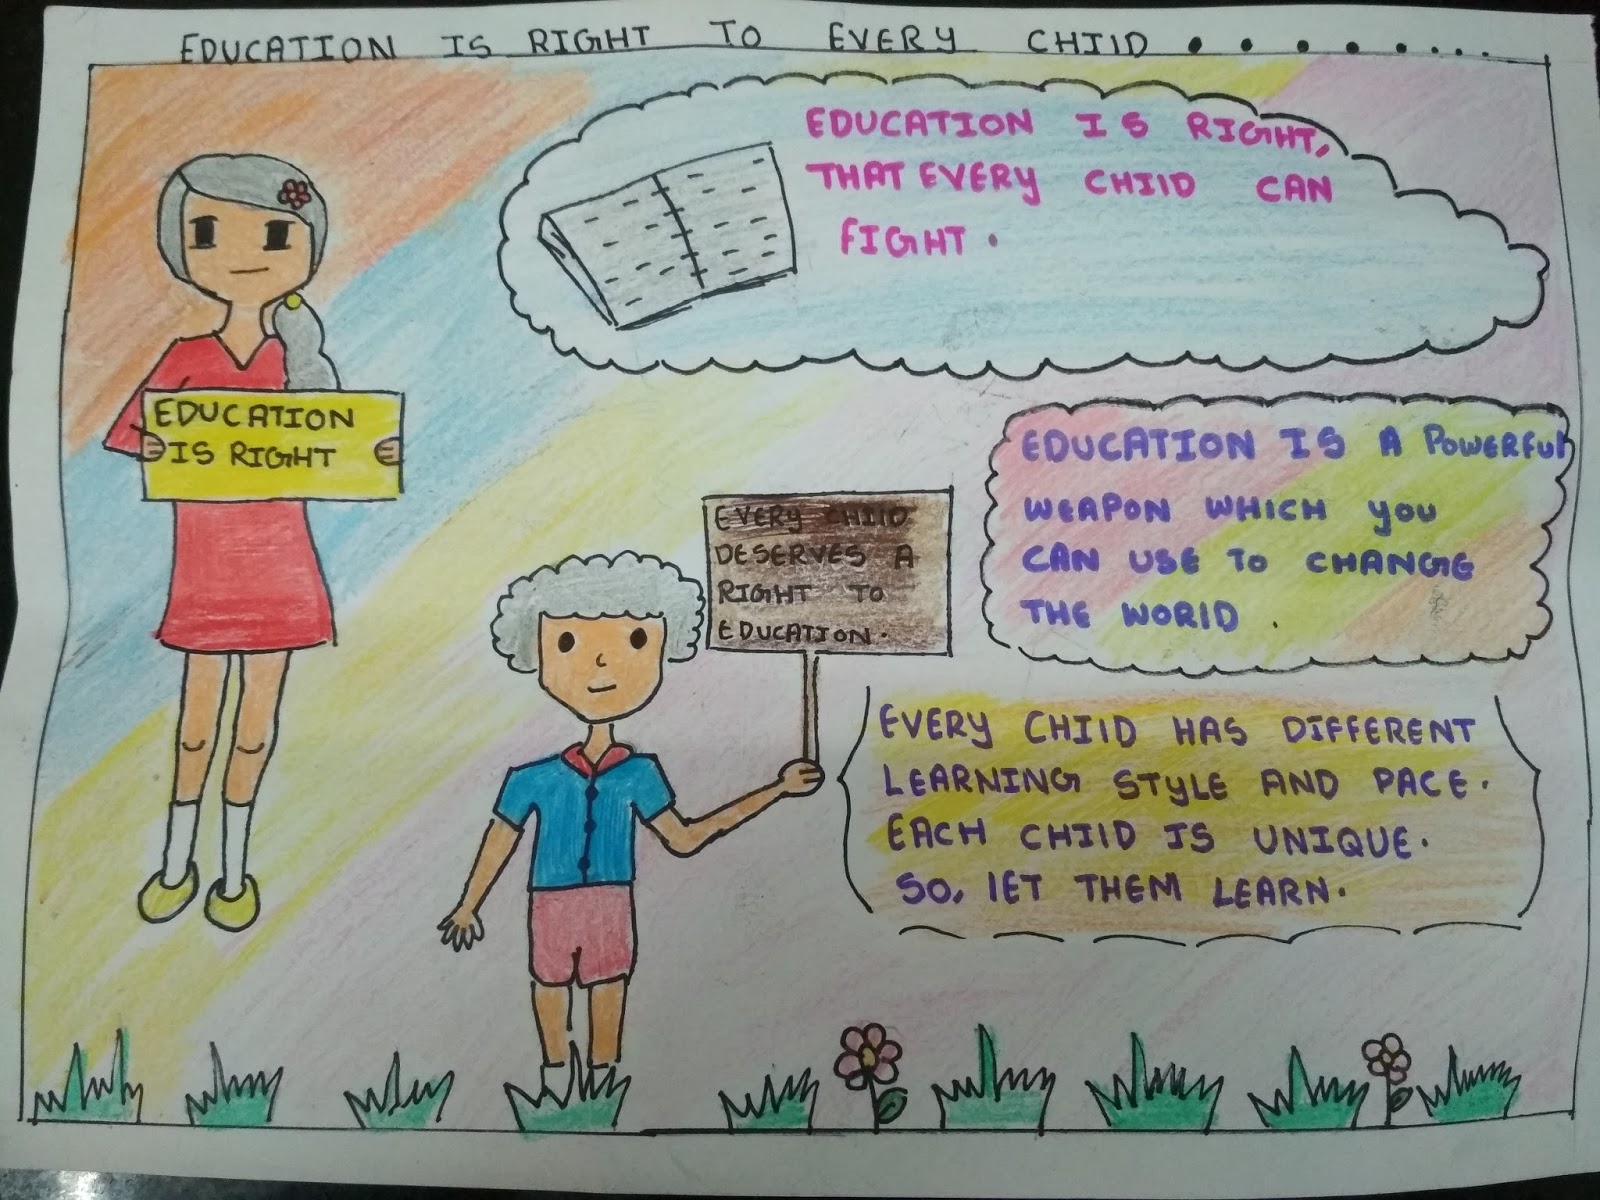 EDUCATION IS RIGHT TO EVERY CHIlD . . . . . . . .
EDUCATION IS RIGHT,
THAT EVERY CHIlD CAN
FIGHT .
EDUCATION
IS RIGHT
EDUCATION IS A POWERFUl
WEAPON WHICH YOU
CAN USE TO CHANGE
THE WORlD .
EVERY CHIlD
DESERVES A
RIGHT TO
EDUCATION.
EVERY CHIlD HAS DIFFERENT
LEARNING STYLE AND PACE.
EACH CHIlD IS UNIQUE.
SO, lET THEM LEARN.